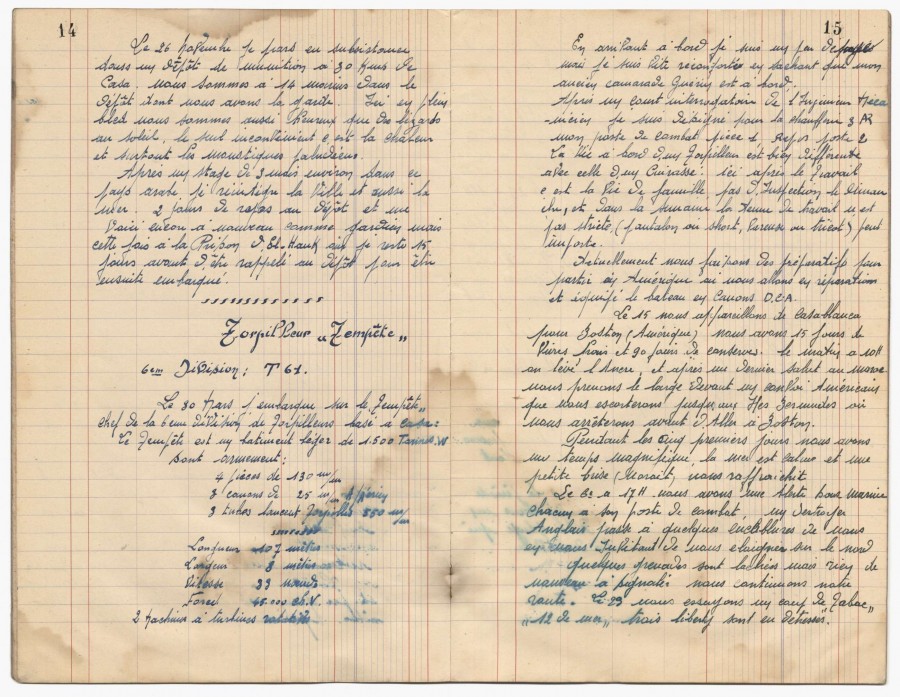 14
Le 26 Novembre je pars en subsistance
dans un Dépôt de munition à 30 Kms de
Casa. Nous sommes à 14 marins dans le
dépôt dont nous avons la garde. Ici en plein
bled nous sommes aussi heureux que des lézards
au soleil, le seul inconvénient c'est la chaleur
et surtout les moustiques paludéens.
Après un stage de 3 mois environ dans ce
pays arabe je réintègre la Ville et aussi la
mer. 2 jours de repos au Dépôt et me
Voici encore à nouveau comme gardien mais
cette fois à la Prison d'El-Hank où je reste 15
jours avant d'être rappelé au dépôt pour être
ensuite embarqué.
Torpilleur "Tempête"
6em Division: T 61.
Le 30 Mars j'embarque sur le Tempête"
Chef de la 6eme division de Torpilleurs basé à Casa:
Le Tempête est un bâtiment léger de 1.500 Tonnes.
Son armement:
4 pièces de 130 m/m
8 canons de 25 m/m
3 tubes lancent Torpilles 550 m/m
Longueur 107 mètres
Largeur 8 mètres
Vitesse 33 nœuds
Force 45.000 ch.V.
2 Machines à turbines
15
En arrivant à bord je suis un peu dépaysé
mais je suis vite réconforté en sachant que mon
ancien camarade Guérin est à bord.
Après un court interrogatoire de l'Ingénieur Méca
nicien je suis désigné pour la chaufferie 3 AR
mon poste de combat pièce 1. poste 2
La vie à bord d'un Torpilleur est bien différente
avec celle d'un Cuirassé. ici après le travail
c'est la Vie de famille pas d'Inspection le diman
che, et dans la semaine la tenue de travail n'est
pas stricte, (pantalon ou short, Vareuse ou tricot) peu
importe.
Actuellement nous faisons des préparatifs pour
partir en Amérique où nous allons en réparation
et équipé le bateau en Canons D.C.A.
Le 15 nous appareillons de Casablanca
pour Boston (Amérique) nous avons 15 jours de
Vivres frais et 90 jours de conserves. le matin à 10H
on lève l'Ancre, et après un dernier salut au
nous prenons le large devant un convoi Américain
que nous escorterons jusqu'aux Iles Bermudes où
nous arrêterons avant d'Aller à Boston.
Pendant les cinq premiers jours nous avons
un temps magnifique, la mer est calme et une
petite brise (Noroit) nous raffraichit
Le 23 à 17H. nous avons une Alerte Sous Marine
chacun à son poste de combat, un destroyer
Anglais passe à quelques encablures de nous
en nous Invitant de nous éloigner sur le nord
quelques grenades sont lachées mais rien de
nouveau à signaler nous continuons notre
route. Le 29 nous essuyons un coup de Tabac"
"12 de mer," trois liberty sont en détresse.